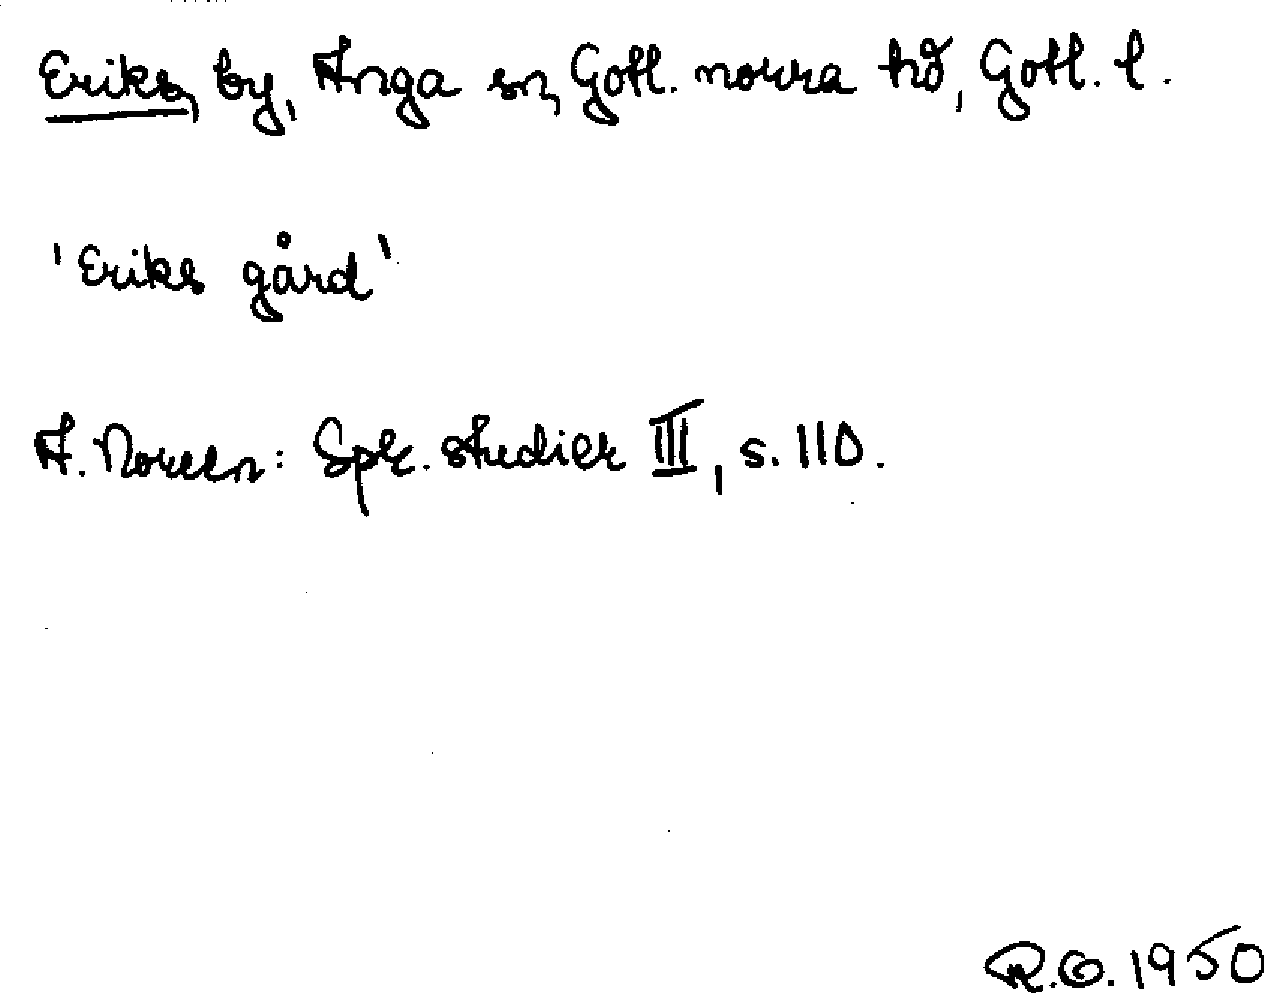 Eriks, by, Anga sn, Gotl. norra hd, Gotl. l.
'Eriks gård'
A. Noreen: Spr. studier III, s. 110.
R.G. 1950